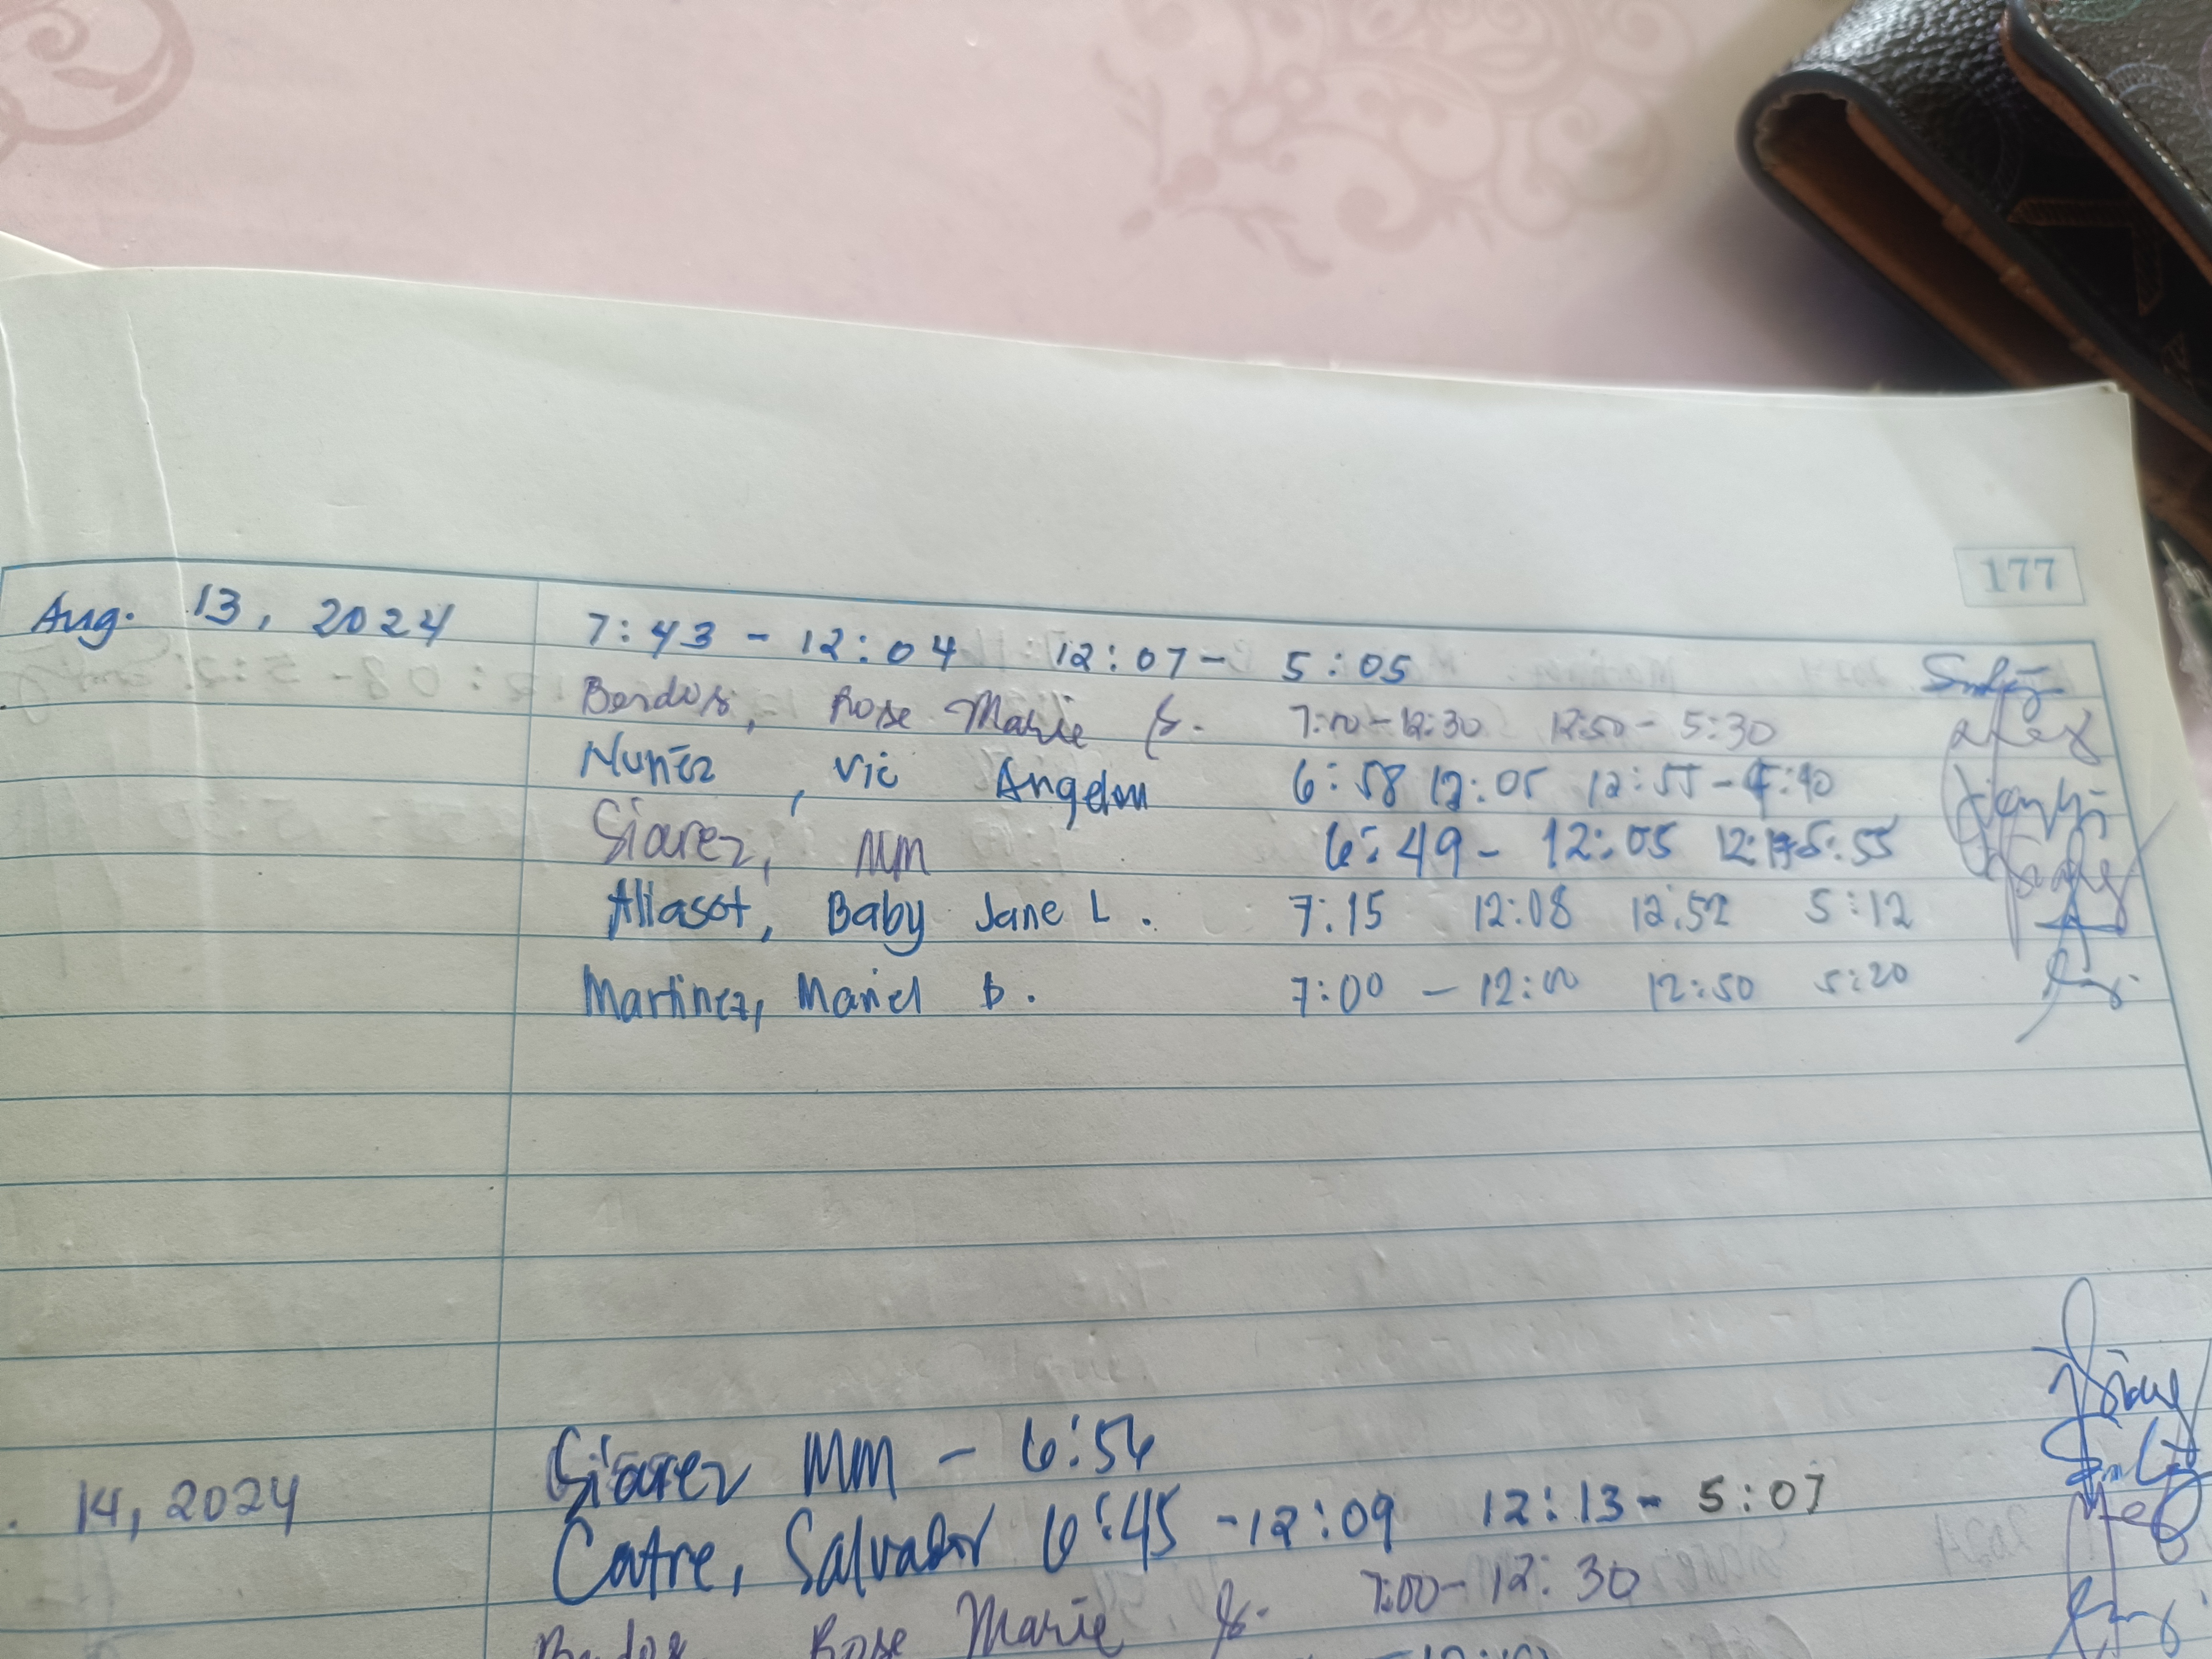 177
Aug. 13, 2024 7:43 - 12:04 12:07 - 5:05
Rose Marie 7:00 - 12:30 12:50 - 5:30
Nuñez, Vic Angelou 6:58 12:05 12:55 - 4:40
Siarez, MM 6:49 - 12:05 5:55
Aliasot, Baby Jane L. 7:15 12:08 12:52 5:12
Martinez, Mariel B. 7:00 - 12:00 12:50 5:20
Siarez MM - 6:56
14, 2024 Catre, Salvador 6:45 - 12:09 12:13 - 5:07
Rose Marie 7:00 - 12:30